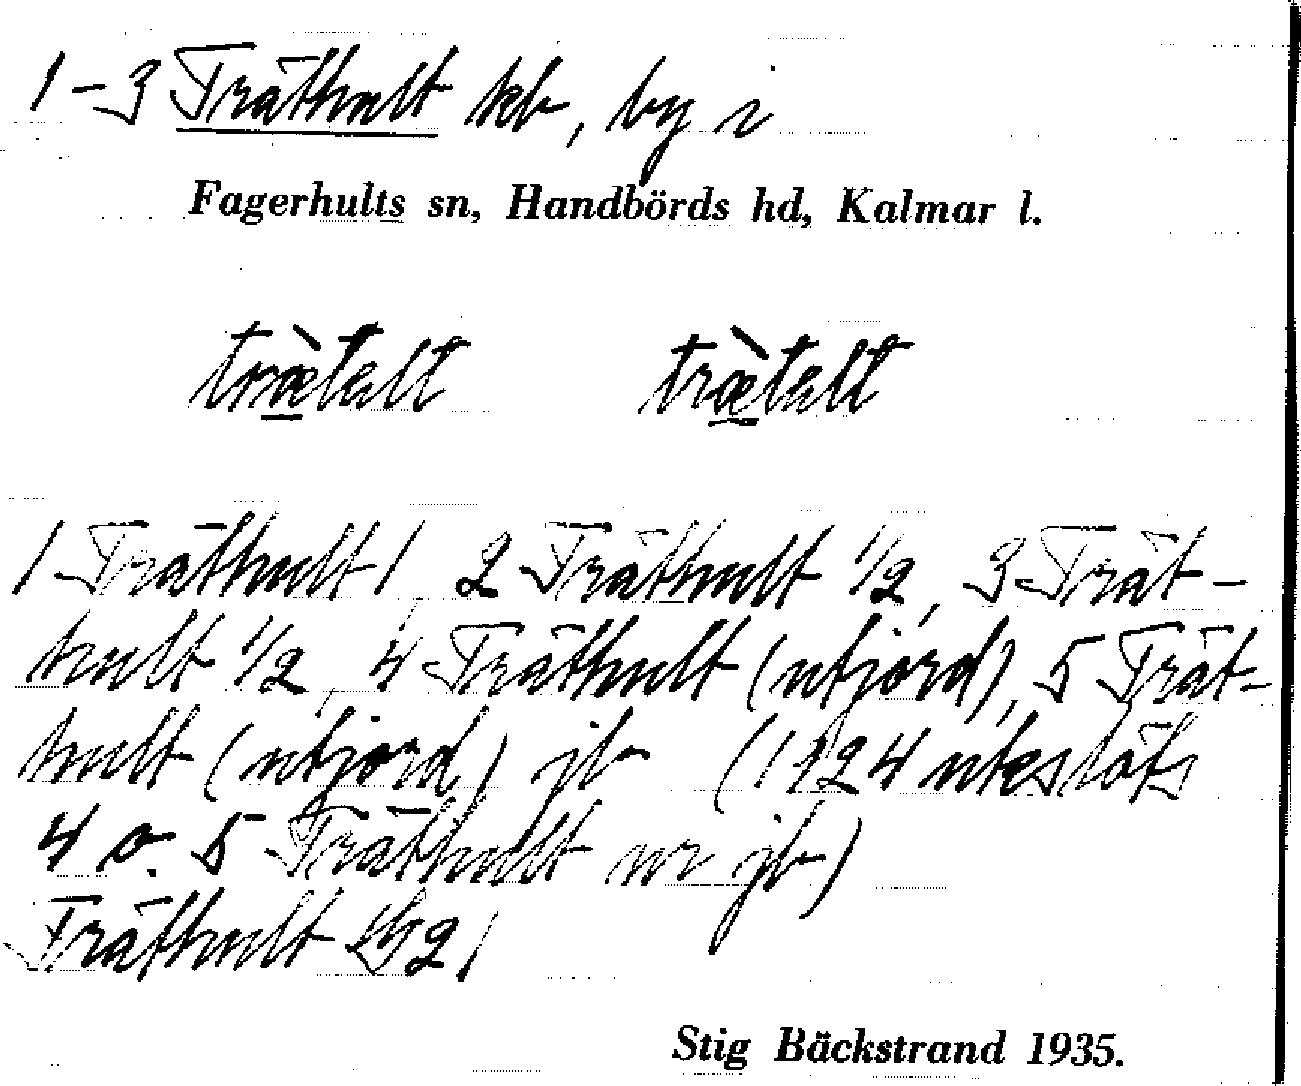 1-3 Träthult kb, by i
Fagerhults sn, Handbörds hd, Kalmar l.
trætelt trætelt
1 Träthult 1, 2 Träthult 1/2, 3 Trät-
hult 1/2, 4 Träthult (utjord), 5 Trät-
hult (utjord) jb (1924 utesluts
4 o. 5 Träthult ur jb)
Träthult
Stig Bäckstrand 1935.